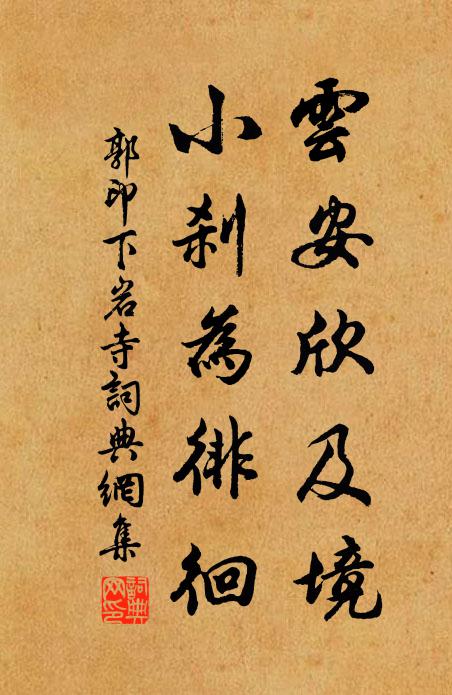 雲安欣及境
小刹為徘徊
郭印下岩寺詞典網集
詞典網印